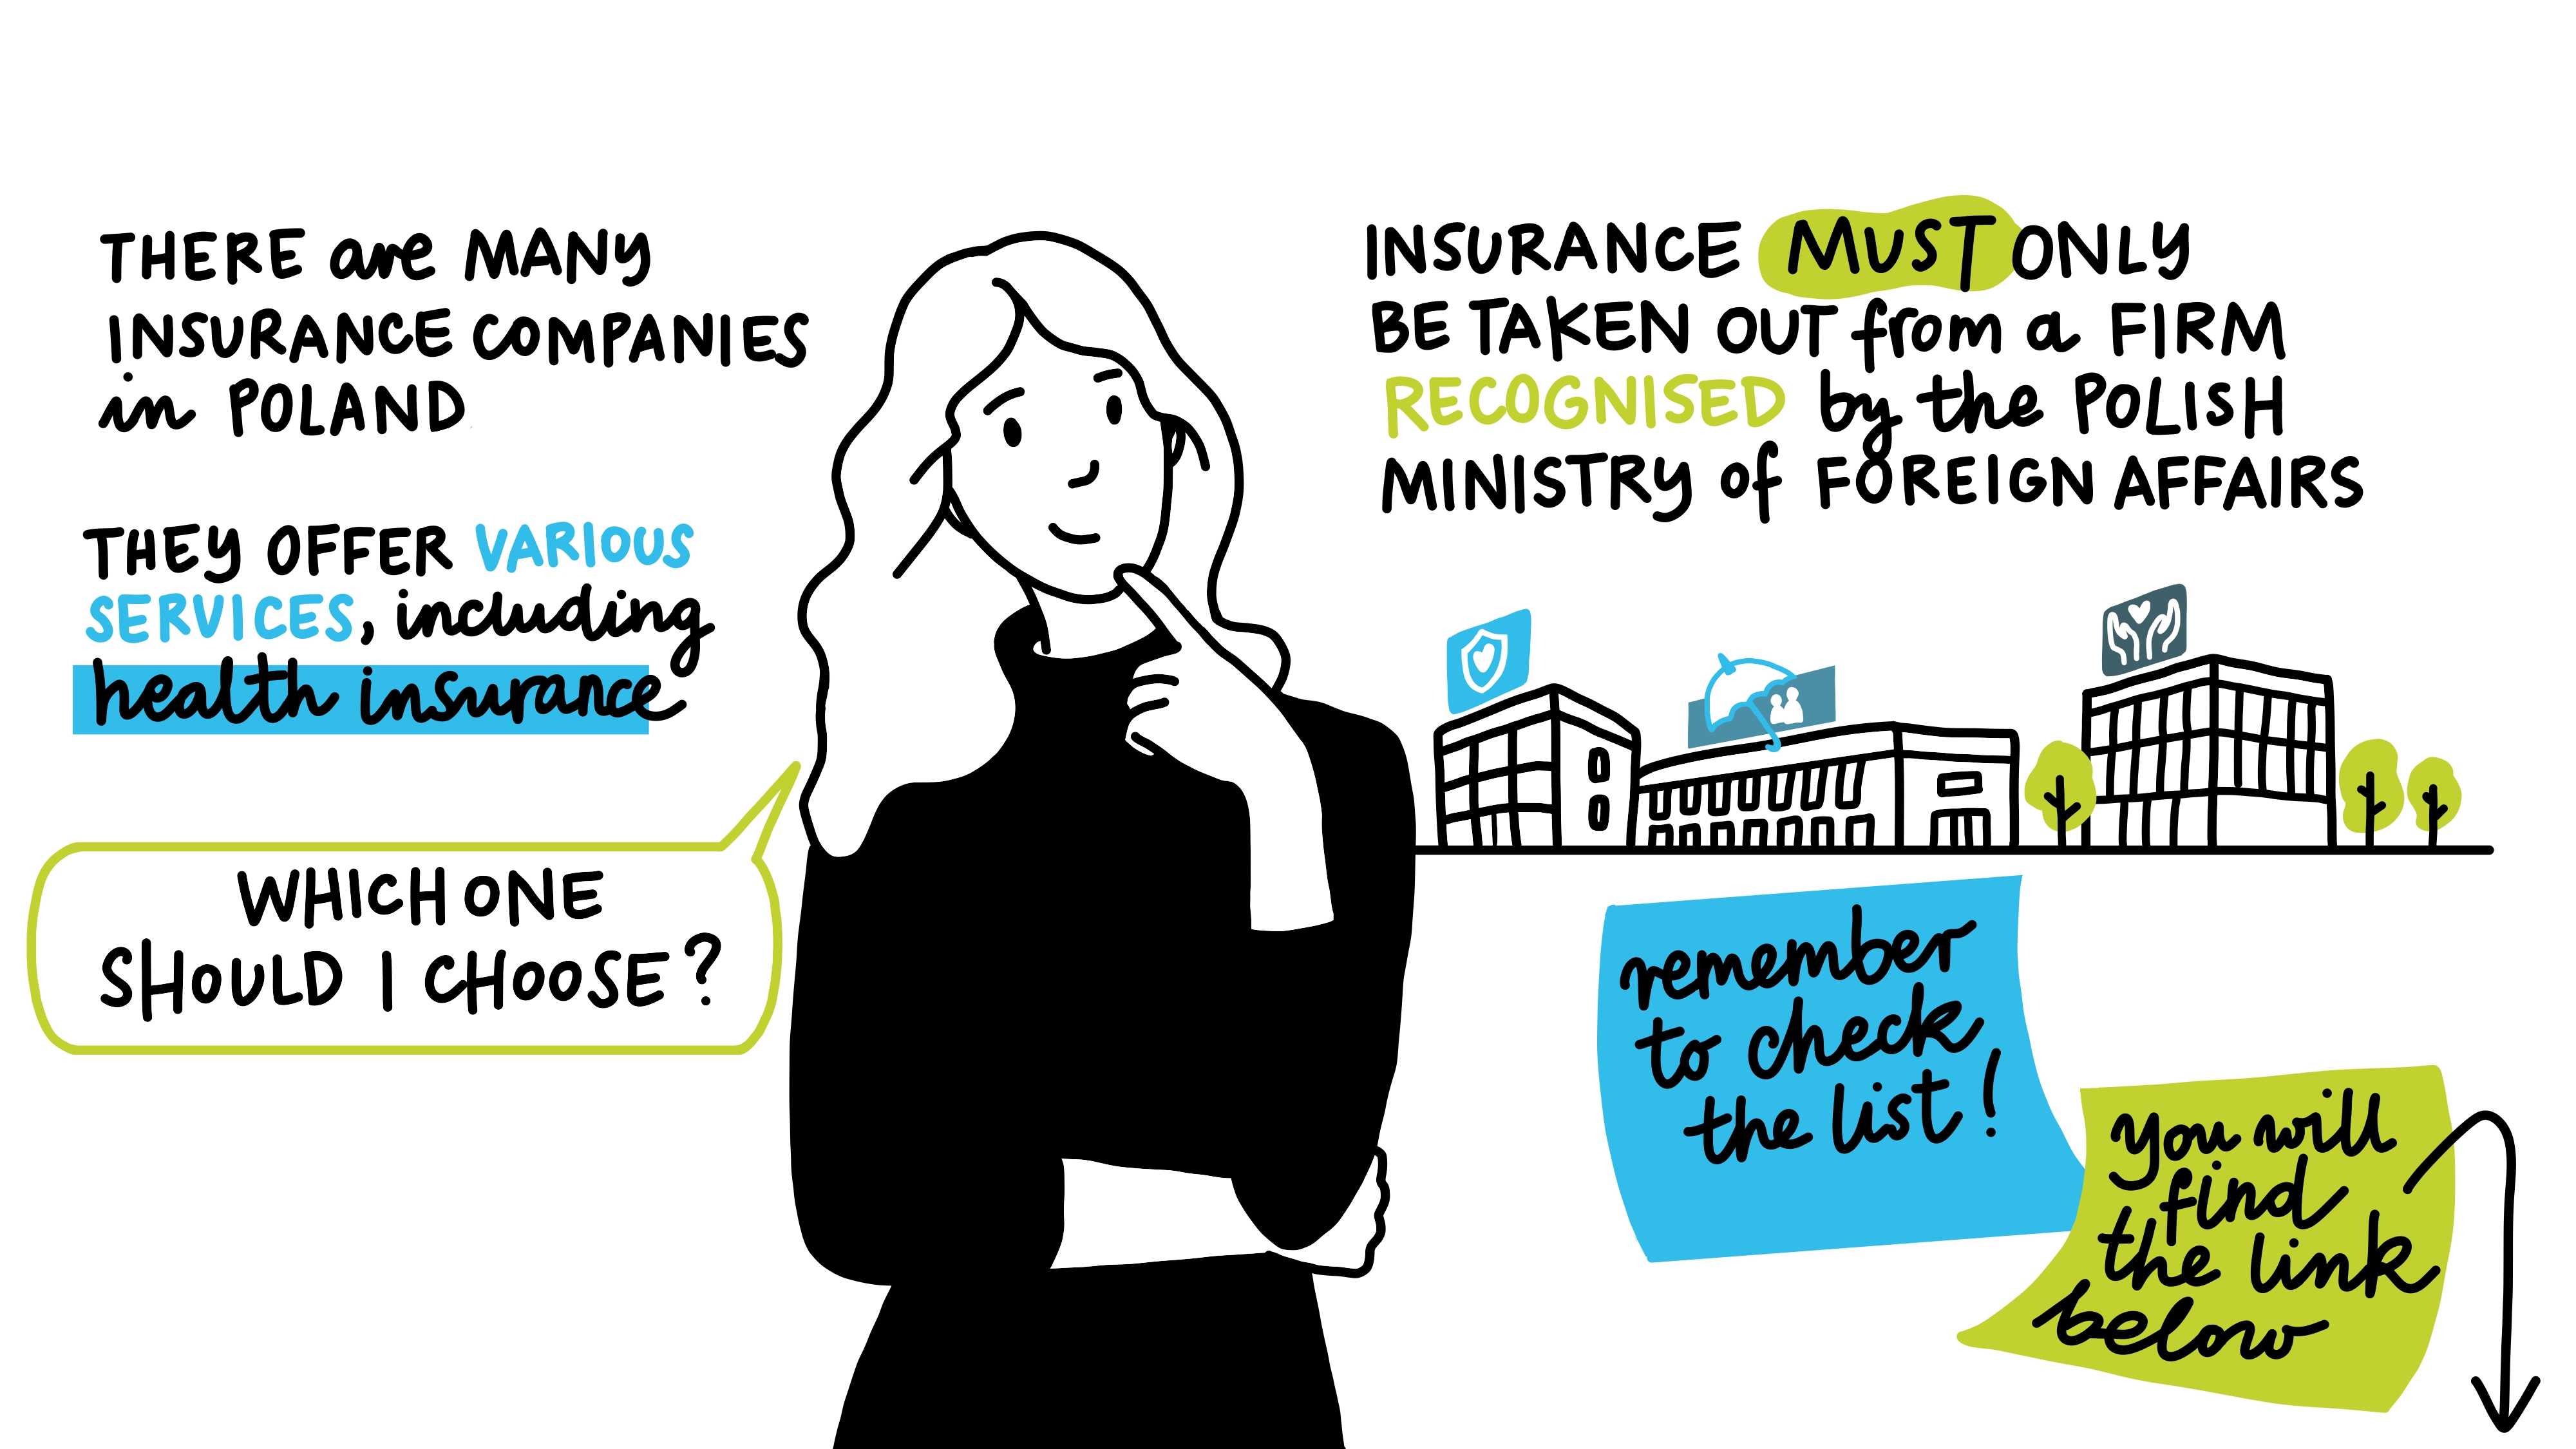 THERE are MANY
INSURANCE COMPANIES
in POLAND
THEY OFFER VARIOUS
SERVICES, including
health insurance
WHICH ONE
SHOULD I CHOOSE?
INSURANCE MUST ONLY
BE TAKEN OUT from a FIRM
RECOGNISED by the POLISH
MINISTRY of FOREIGN AFFAIRS
remember
to check
the list!
you will
find
the link
below